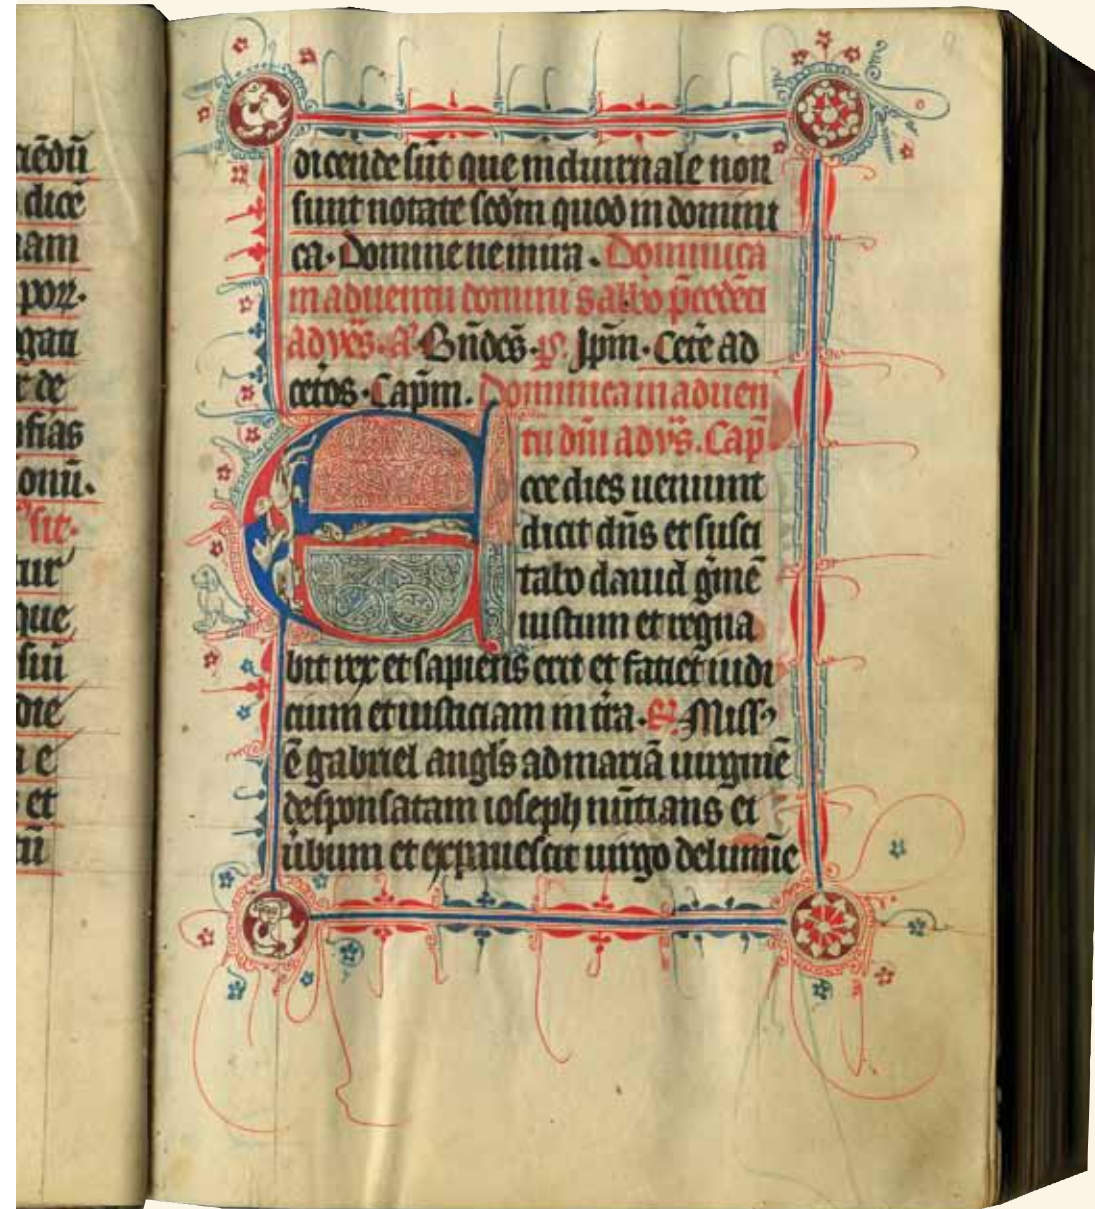 ciēdū
dicē
nam
porr·
gati
r de
nfias
onū·
sic·
tur
que
sui
die
a e
et
cū
dicende sūt que in diurnale non
sunt notate scđm quod in domini
ca· Domine ne in ira · Dominica
in aduentu domini sabbō p̄cedēti
ad vēs· a᷒ Bn̄dēs· p̄s· Ip̄m· Cetē ad
cetōs · Cap̄m · Dominica in aduen
tu dn̄i ad vs̄· Cap̄
Ecce dies ueniunt
dicit dn̄s et susci
tabo dauid gͥmē
iustum et regna
bit rex et sapiens erit et faciet iudi
cium et iusticiam in tr̄a · R᷒· Miss᷒
ē gabriel angl̄s ad mariā uirginē
desponsatam ioseph nūtians ei
ūbum et expauescit uirgo de lumīe